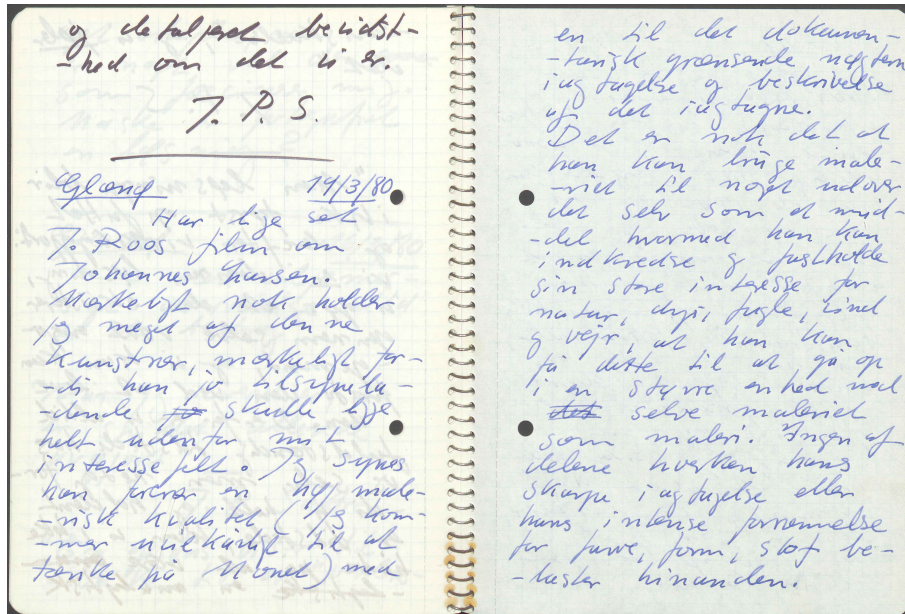 og detaljeret bevidst-
-hed om det vi er.
J. P. S.
Glænø 19/3/80
Har lige set
J. Roos film om
Johannes Larsen.
Mærkeligt nok holder
jeg meget af denne
kunstner, mærkeligt for-
-di han jo tilsynela-
-dende skulle ligge
helt udenfor mit
interessefelt. Jeg synes
han forener en høj male-
-risk kvalitet (jeg kom-
-mer uvilkårligt til at
tænke på Monet) med
en til det dokumen-
-tarisk grænsende nøgtern
iagtagelse og beskrivelse
af det iagtagne.
Det er nok det at
han kan bruge male-
-riet til noget udover
det selv som et mid-
-del hvormed han kan
indkredse og fastholde
sin store interesse for
natur, dyr, fugle, vind
og vejr, at han kan
få dette til at gå op
i en større enhed med
det selve maleriet
som maleri. Ingen af
delene hverken hans
skarpe iagtagelse eller
hans intense fornemmelse
for farve, form, stof be-
-laster hinanden.